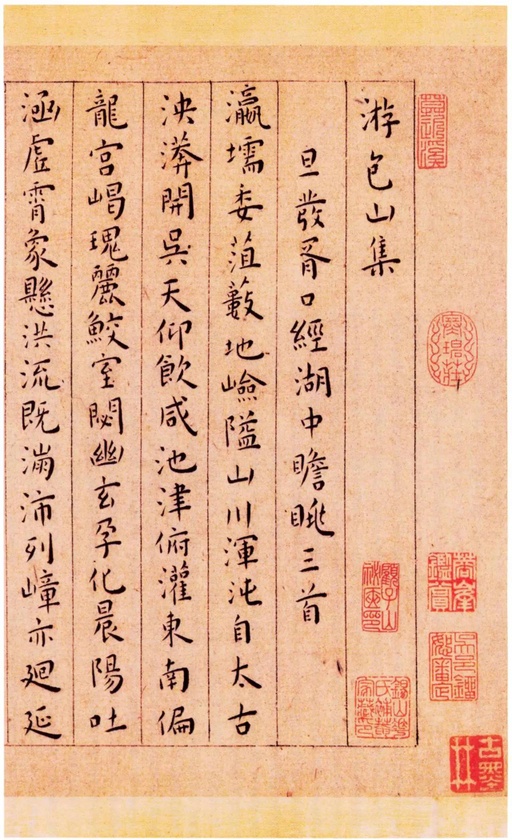 游包山集
旦發胥口經湖中瞻眺三首
瀛壖委菹藪地嶮隘山川渾沌自太古
泱漭開吳天仰飲咸池津俯灌東南偏
龍宮崵瑰麗鮫室閟幽玄孕化晨陽吐
涵虛霄象懸洪流既滿沛列嶂亦廻延